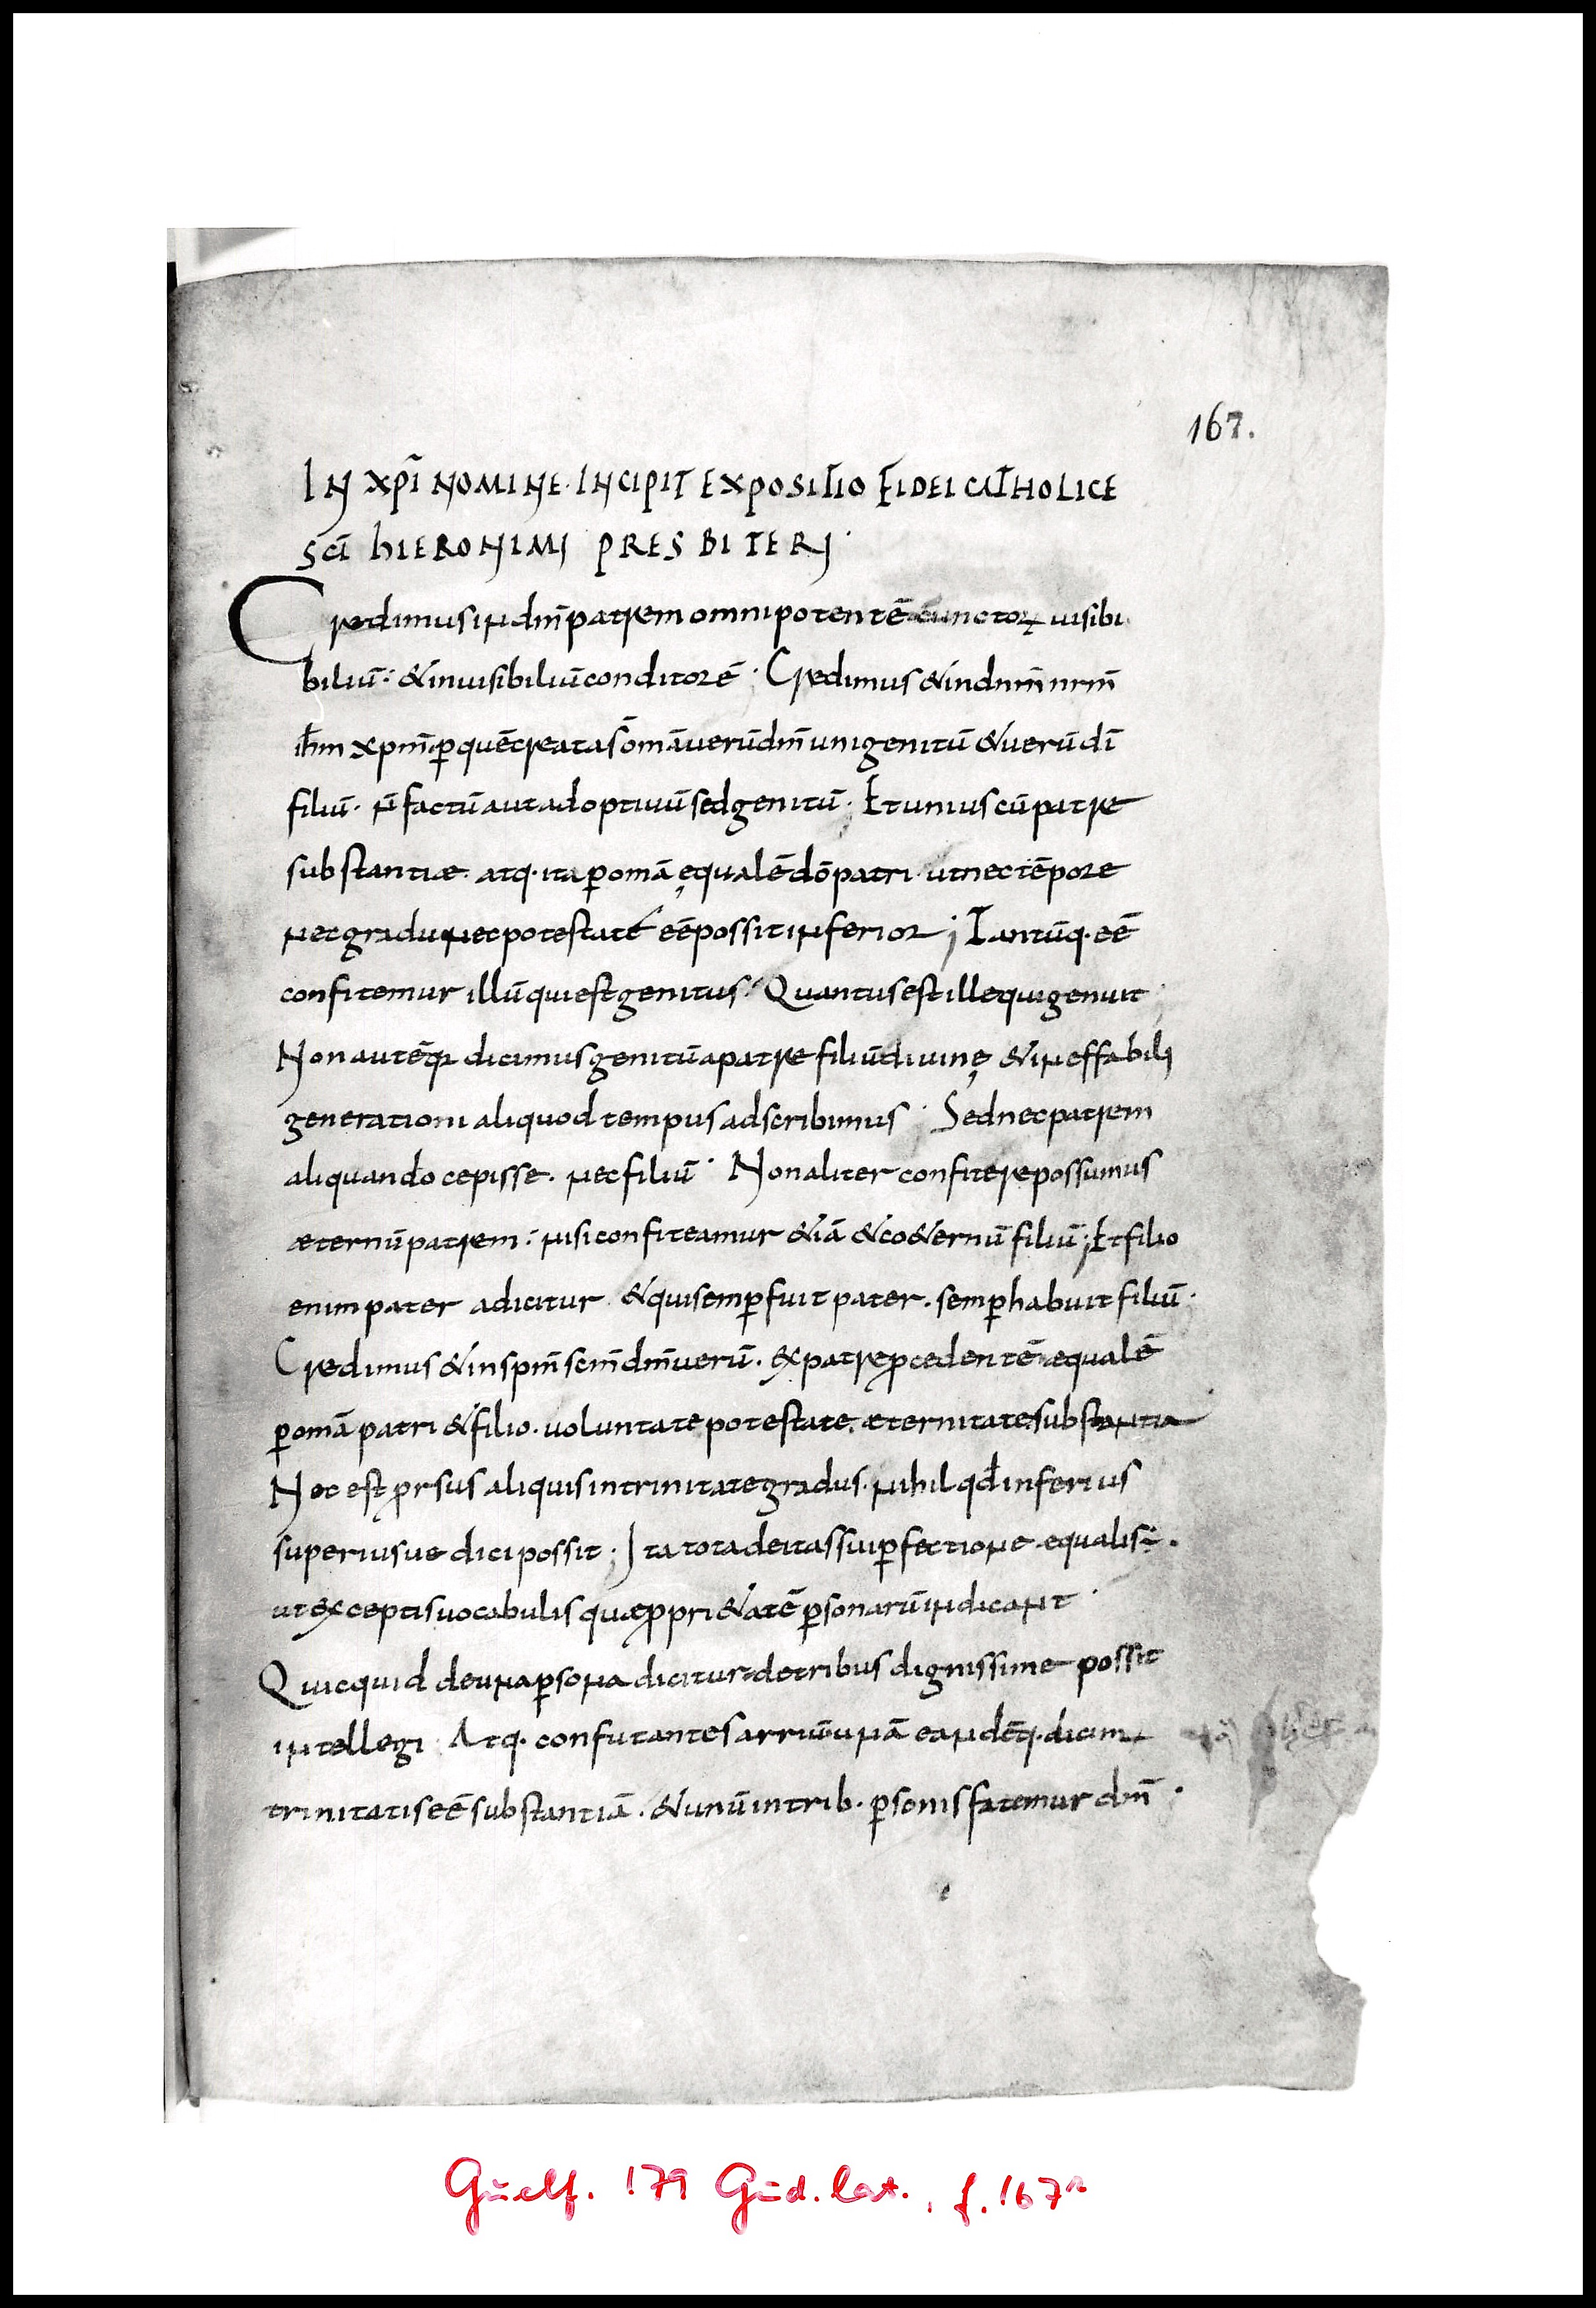 167.
IN XPĪ NOMINE· INCIPIT EXPOSITIO FIDEI CATHOLICE
SCĪ HIERONIMI PRESBITERI·
Credimus in dm̄ patrem omnipotentē cunctoꝝ uisibi
biliū· & inuisibiliū conditorē· Credimus & in dnm̄ nrm̄
ih̄m xpm̄ ꝑ quē creata s̄ om̄a uerū dm̄ unigenitū & uerū dī
filiū· n̄ factū aut adoptiuū sed genitū· Et unius cū patre
substantiæ· atq· ita ꝑ om̄a ęqualē dō patri· ut nec tēpore
nec gradu nec potestate eē possit inferior; Tantūq· eē
confitemur illū qui est genitus· Quantus est ille qui genuit·
Non autē qꝛ dicimus genitū a patre filiū diuinę & ineffabili
generationi aliquod tempus adscribimus· Sed nec patrem
aliquando cepisse· nec filiū· Non aliter confitere possumus
æternū patrem· nisi confiteamur &iā & co&ernū filiū; Et filio
enim pater adicitur & qui semꝑ fuit pater· semꝑ habuit filiū·
Credimus & in spm̄ scm̄ dm̄ uerū· ex patre ꝓcedentē æqualē
ꝑ om̄a patri & filio· uoluntate potestate· æternitate substantia
Nec est ꝓrsus aliquis in trinitate gradus· nihil qd̄ inferius
superiusue dici possit· Ita tota deitas sui ꝑfectione equalis ÷·
ut exceptis uocabulis quæ ꝓpri&atē ꝑsonarū indicant·
Quicquid de una ꝑsona dicitur de tribus dignissime possit
intellegi· Atq· confutantes arriū unā eandēq· dicim
trinitatis eē substantiā· & unū in trib· ꝑsonis fatemur dm̄·
Guelf. 179 Gud. lat., f. 167r